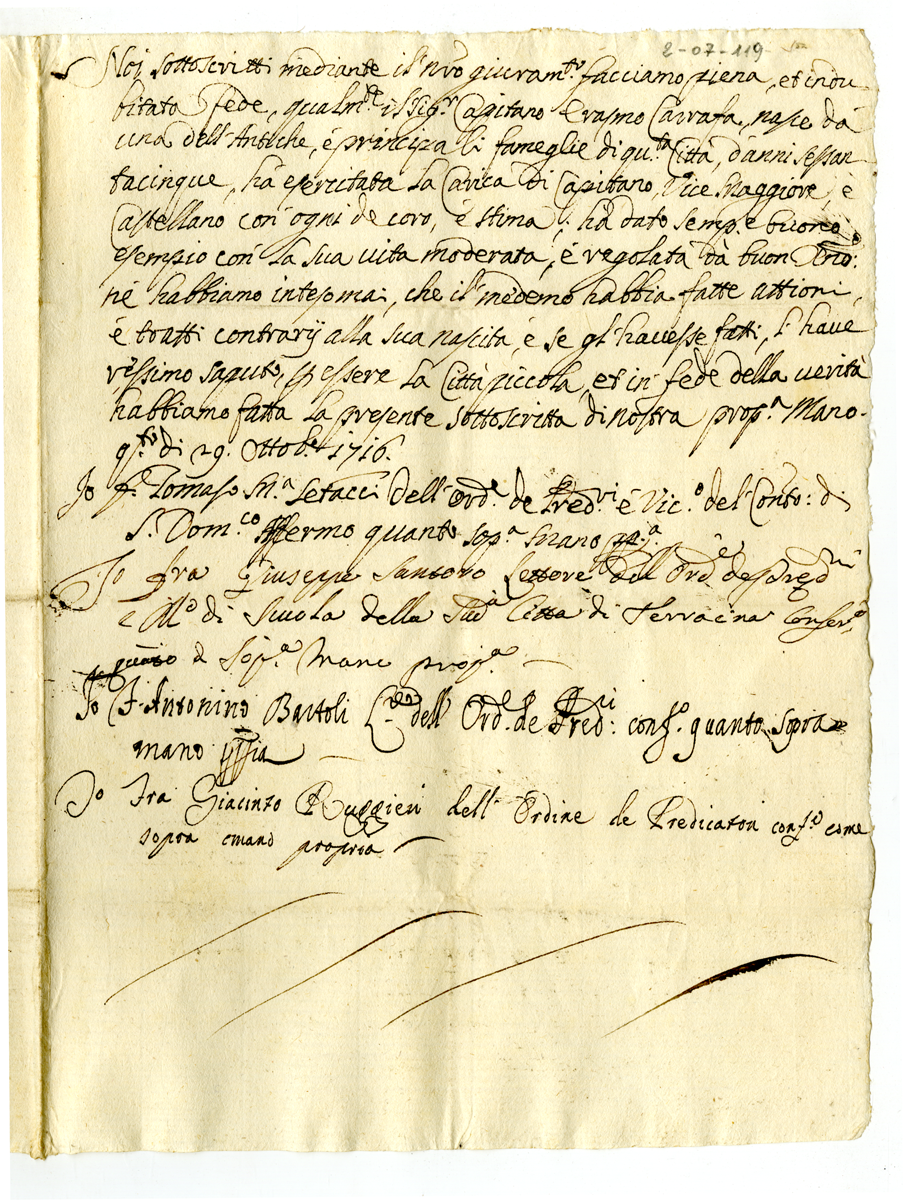 2-07-119
Noi sottoscritti mediante il nro giuram.to facciamo piena, et indu
bitata fede, qualm.te il Sig.r Capitano Erasmo Carrafa, nasce da
una dell'Antiche, é principali fameglie di qu.ta Città, d'anni sessan
tacinque, hà esercitata la Carica di Capitano, Vice Maggiore, é
Castellano con ogni decoro, é stima, hà dato semp.e buono
esempio con la sua vita moderata, é regolata dà buon
né habbiamo inteso mai, che il medemo habbia fatte attioni,
é tratti contrarij alla sua nascita, é se gl'havesse fatti, l'have
ressimo saputo, p essere la Città piccola, et in fede della verità
habbiamo fatta la presente sottoscritta di nostra prop.a Mano.
q.to di 29. Ottob.e 1716.
Io f. Tomaso M.a Setacci dell'Ord.e de Pred.ri é Vic.o del Conto: di
S. Dom.co affermo quanto sop.a mano pp.a
Io fra Giuseppe Santoro Lettore dell'Ord.e de Pred.ri
e M.o di Scuola della Sud.a Città di Terracina Confer.o
quanto di Sop.a mano prop.a
Io F. Antonino Bartoli dell'Ord.e de Pred.ri: conf.o quanto sopra
mano ppria
Io Fra Giacinto Ruggieri dell'Ordine de Predicatori conf.o come
sopra mano propria